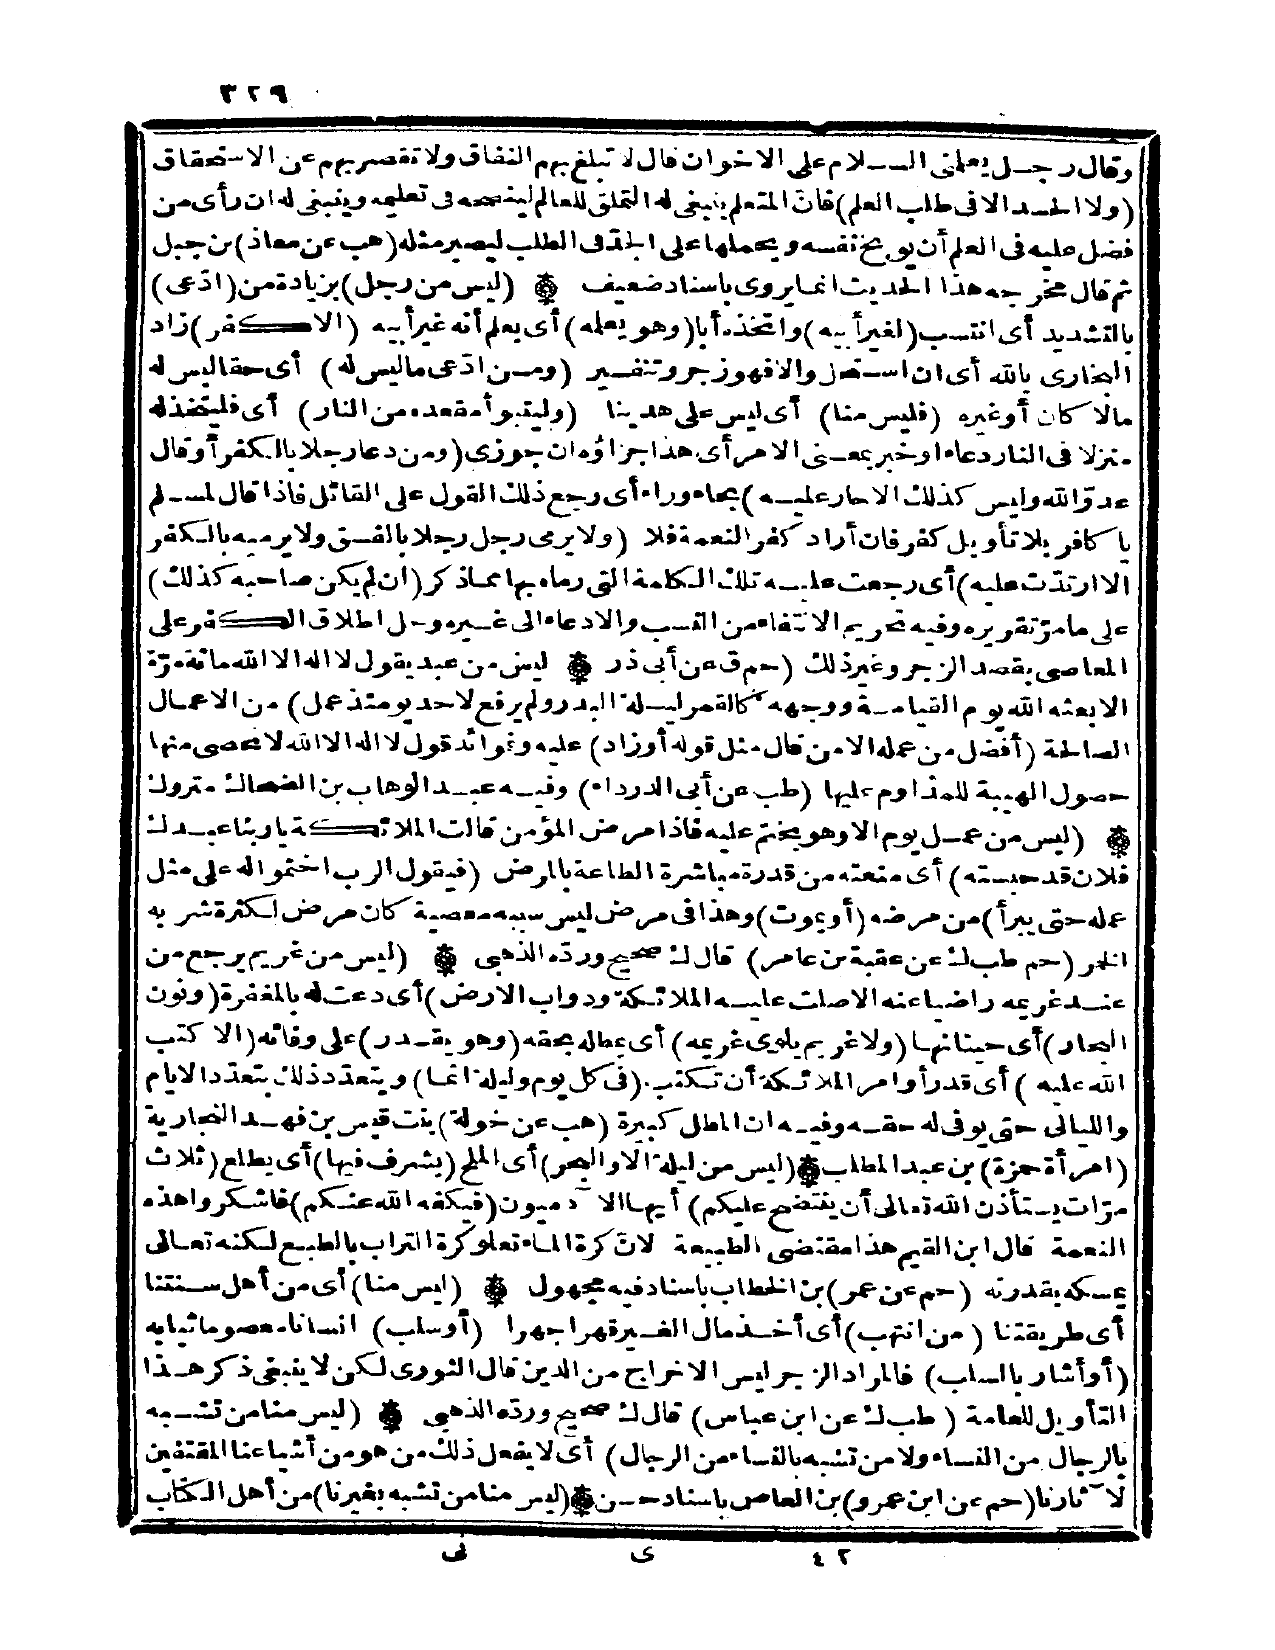 ٣٢٩
وقال رجل يعلنى السلام على الاخوان قال لا تبلغ بهم النفاق ولا تقصر بهم عن الاستحقاق
(ولا الحسد الا فى طلب العلم) فان المتعلم ينبغى له التملق للعالم لينصحه فى تعليمه وينبغى له ان رأى من
فضل عليه فى العلم أن يوبخ نفسه ويحملها على الجد فى الطلب ليصير مثله (هب عن معاذ) بن جبل
ثم قال مخرجه هذا الحديث انما يروى باسناد ضعيف (ليس من رجل) بزيادة من (ادّعى)
بالتشديد أى انتسب (لغير أبيه) واتخذه أبا (وهو يعلمه) أى يعلم أنه غير أبيه (الا كفر) زاد
البخارى بالله أى ان استحل والا فهو زجر وتنفير (ومن ادّعى ماليس له) أى حقا ليس له
مالا كان أو غيره (فليس منا) أى ليس على هدينا (وليتبوأ مقعده من النار) أى فليتخذ له
منزلا فى النار دعاء او خبر بمعنى الامر أى هذا جزاؤه ان جوزى (ومن دعا رجلا بالكفر أو قال
عدوّ الله وليس كذلك الا حار عليه) بحاء وراء أى رجع ذلك القول على القائل فاذا قال لمسلم
يا كافر بلا تأويل كفر فان أراد كفر النعمة فلا (ولا يرمى رجل رجلا بالفسق ولا يرميه بالكفر
الا ارتدّت عليه) أى رجعت عليه تلك الكلمة التى رماه بها مماذكر (ان لم يكن صاحبه كذلك)
على مامرّ تقريره وفيه تحريم الانتفاء من النسب والادعاء الى غيره وحل اطلاق الكفر على
المعاصى بقصد الزجر وغير ذلك (حم ق عن أبى ذر) ليس من عبد يقول لا اله الا الله مائة مرّة
الا بعثه الله يوم القيامة ووجهه كالقمر ليلة البدر ولم يرفع لاحد يومئذ عمل) من الاعمال
الصالحة (أفضل من عمله الا من قال مثل قوله أو زاد) عليه وفوائد قول لا اله الا الله لا تحصى منها
حصول الهيبة للمداوم عليها (طب عن أبى الدرداء) وفيه عبد الوهاب بن الضحاك متروك
(ليس من عمل يوم الا وهو يختم عليه فاذا مرض المؤمن قالت الملائكة يا ربنا عبدك
فلان قد حبسته) أى منعته من قدرة مباشرة الطاعة بالمرض (فيقول الرب اختموا له على مثل
عمله حتى يبرأ) من مرضه (أو يموت) وهذا فى مرض ليس سببه معصية كان مرض لكثرة شربه
الخمر (حم طب ك عن عقبة بن عامر) قال ك صحيح وردّه الذهبى (ليس من غريم يرجع من
عند غريمه راضيا عنه الا صلت عليه الملائكة ودواب الارض) أى دعت له بالمغفرة (ونون
البحار) أى حيتانها (ولا غريم يلوى غريمه) أى يمطله بحقه (وهو يقدر) على وفائه (الا كتب
الله عليه) أى قدر أو امر الملائكة أن تكتب (فى كل يوم وليلة اثما) ويتعدد ذلك بتعدد الايام
والليالى حتى يوفى له حقه وفيه ان المطل كبيرة (هب عن خولة) بنت قيس بن فهد النجارية
(امرأة حمزة) بن عبد المطلب (ليس من ليلة الا والبحر) أى الملح (يشرف فيها) أى يطلع (ثلاث
مرّات يستأذن الله تعالى أن ينفضح عليكم) أيها الآدميون (فيكفه الله عنكم) فاشكروا هذه
النعمة قال ابن القيم هذا مقتضى الطبيعة لان كرة الماء تعلو كرة التراب بالطبع لكنه تعالى
يمسكه بقدرته (حم عن عمر) بن الخطاب باسناد فيه مجهول (ليس منا) أى من أهل سنتنا
أى طريقتنا (من انتهب) أى أخذ مال الغير قهرا جهرا (أو سلب) انسانا معصوما ثيابه
(أو أشار بالسلب) فالمراد الزجر ليس الاخراج من الدين قال النووى لكن لا ينبغى ذكر هذا
التأويل للعامة (طب ك عن ابن عباس) قال ك صحيح وردّه الذهبى (ليس منا من تشبه
بالرجال من النساء ولا من تشبه بالنساء من الرجال) أى لا يفعل ذلك من هو من أشياعنا المقتفين
لآثارنا (حم عن ابن عمرو) بن العاص باسناد حسن (ليس منا من تشبه بغيرنا) من أهل الكتاب
٤٢ ى نى